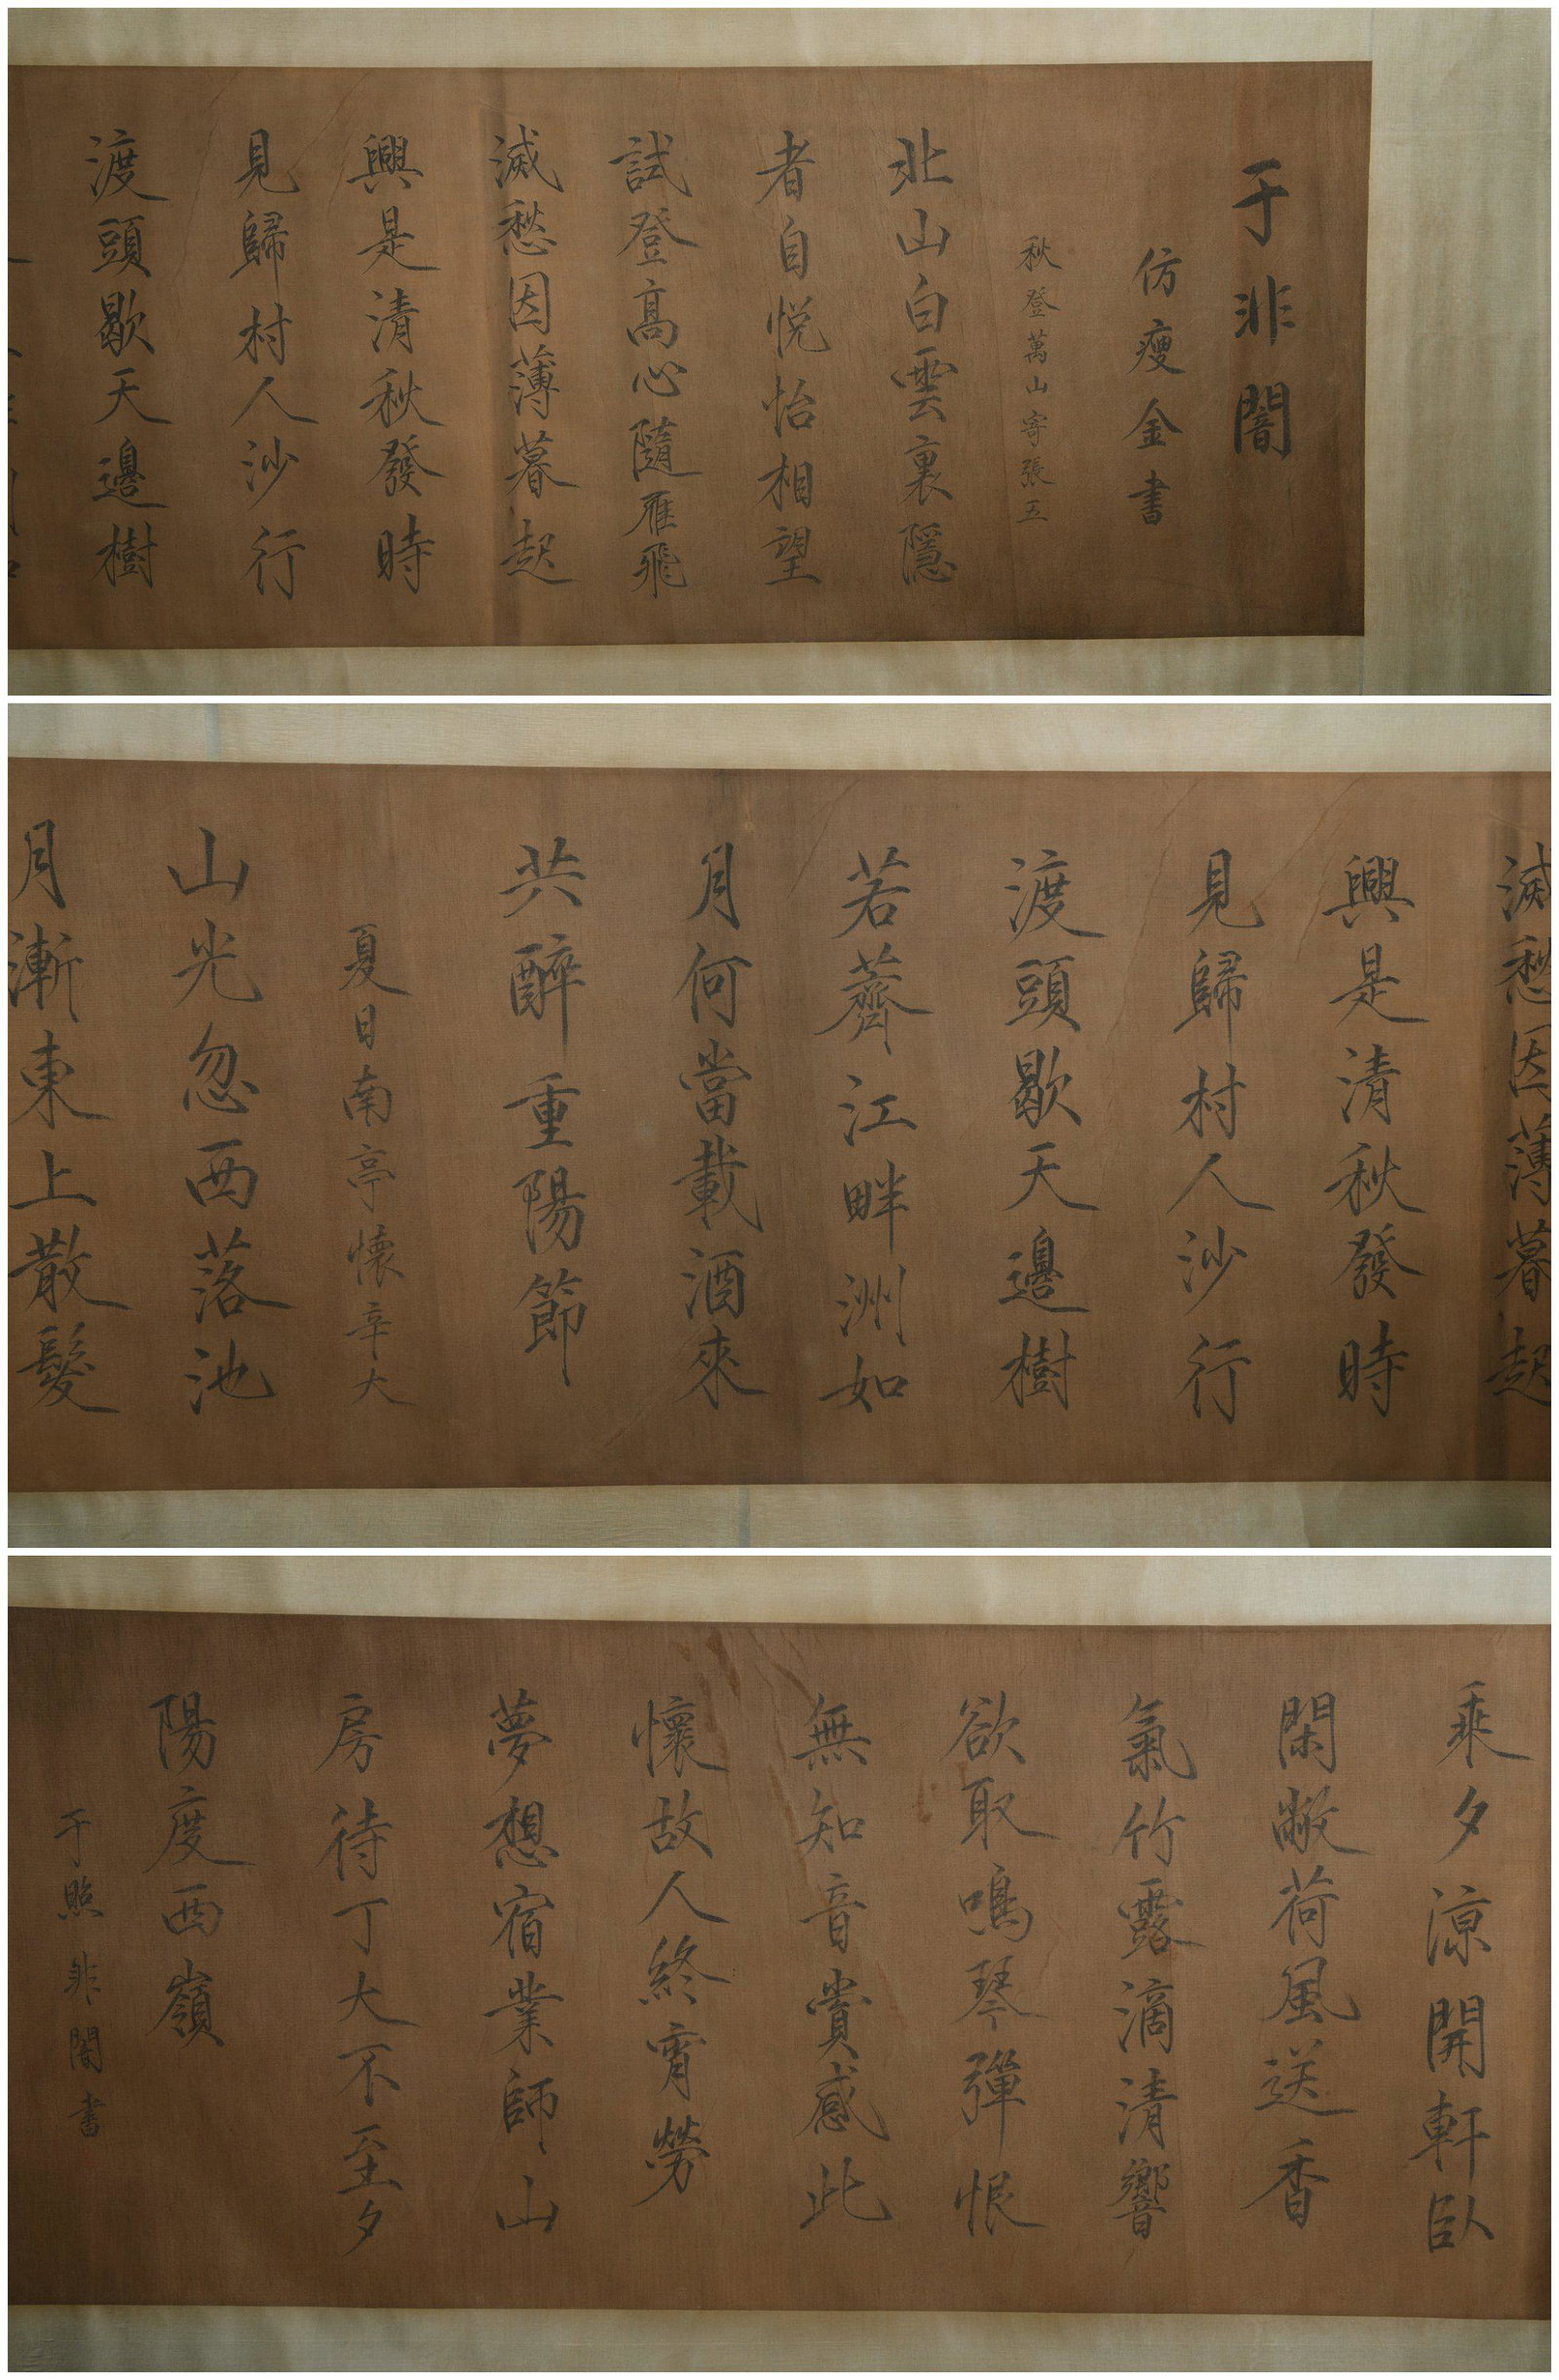 于非闇
仿瘦金書
秋登萬山寄張五
北山白雲裏隱
者自悅怡相望
試登高心隨雁飛
滅愁因薄暮起
興是清秋發時
見歸村人沙行
渡頭歇天邊樹
滅愁因薄暮起
興是清秋發時
見歸村人沙行
渡頭歇天邊樹
若薺江畔洲如
月何當載酒來
共醉重陽節
夏日南亭懷辛大
山光忽西落池
月漸東上散髮
乘夕涼開軒臥
閑敞荷風送香
氣竹露滴清響
欲取鳴琴彈恨
無知音賞感此
懷故人終宵勞
夢想宿業師山
房待丁大不至夕
陽度西嶺
于照非闇書